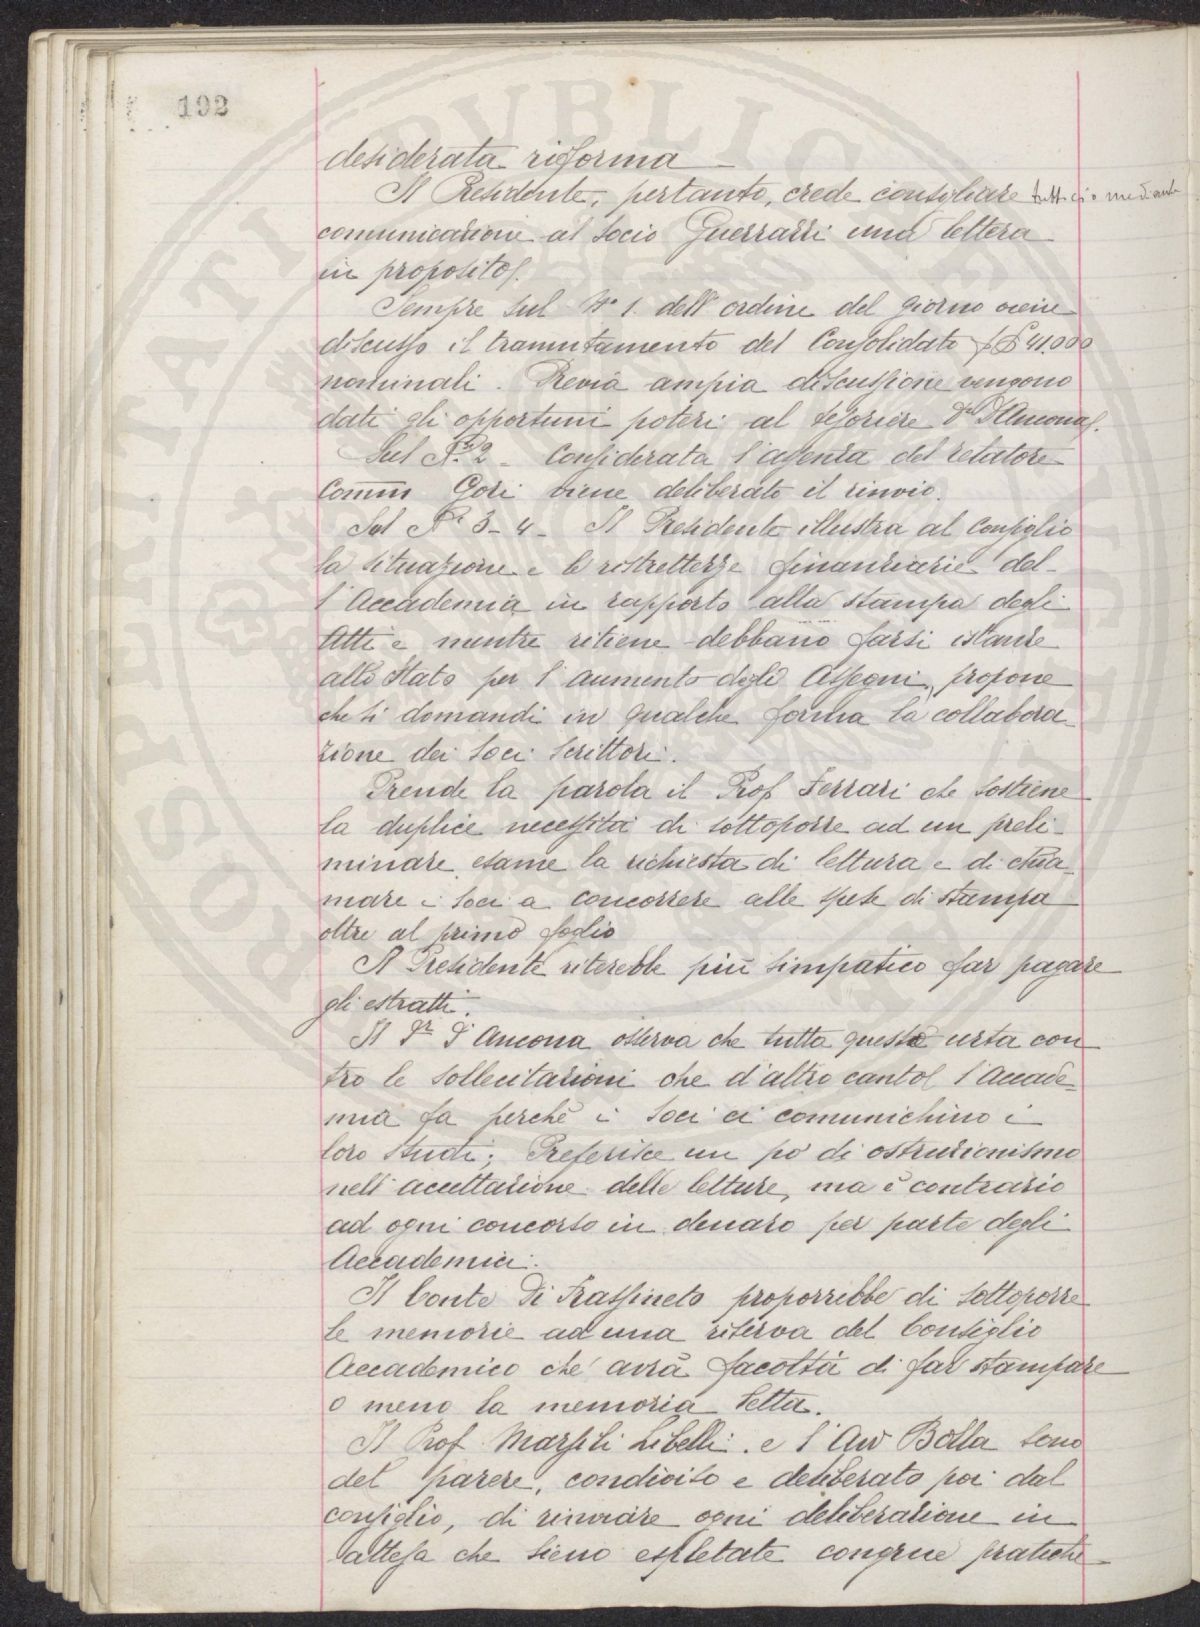 192
desiderata riforma
Il Presidente, pertanto, crede consigliare tutto ciò mediante
comunicazione al socio Guerrazzi una lettera
in proposito.
Sempre sul N° 1. dell'ordine del giorno viene
discusso il tramutamento del Consolidato £ 41.000
nominali. Previa ampia discussione vengono
dati gli opportuni poteri al tesoriere Dr D'Ancona.
Sul N° 2 - Considerata l'assenza del relatore
Comm Gori viene deliberato il rinvio.
Sul Ni 3-4- Il Presidente illustra al Consiglio
la situazione e le ristrettezze finanziarie del-
l'Accademia in rapporto alla stampa degli
Atti e mentre ritiene debbano farsi istanze
allo Stato per l'aumento degli Assegni, propone
che si domandi in qualche forma la collabora-
zione dei soci scrittori.
Prende la parola il Prof Ferrari che sostiene
la duplice necessità di sottoporre ad un preli-
minare esame la richiesta di lettura e di chia-
mare i soci a concorrere alle spese di stampa
oltre al primo foglio
Il Presidente riterebbe più simpatico far pagare
gli estratti.
Il Dr D'Ancona osserva che tutto questo urta con
tro le sollecitazioni che d'altro canto l'Accade-
mia fa perchè i soci ci comunichino i
loro studi; Preferisce un pò di ostruzionismo
nell'accettazione delle letture, ma è contrario
ad ogni concorso in denaro per parte degli
Accademici.
Il Conte Di Frassineto proporrebbe di sottoporre
le memorie ad una riserva del Consiglio
Accademico che avrà facoltà di far stampare
o meno la memoria letta.
Il Prof Marsili Libelli e l'Avv Bolla sono
del parere, condiviso e deliberato poi dal
consiglio, di rinviare ogni deliberazione in
attesa che sieno espletate congrue pratiche